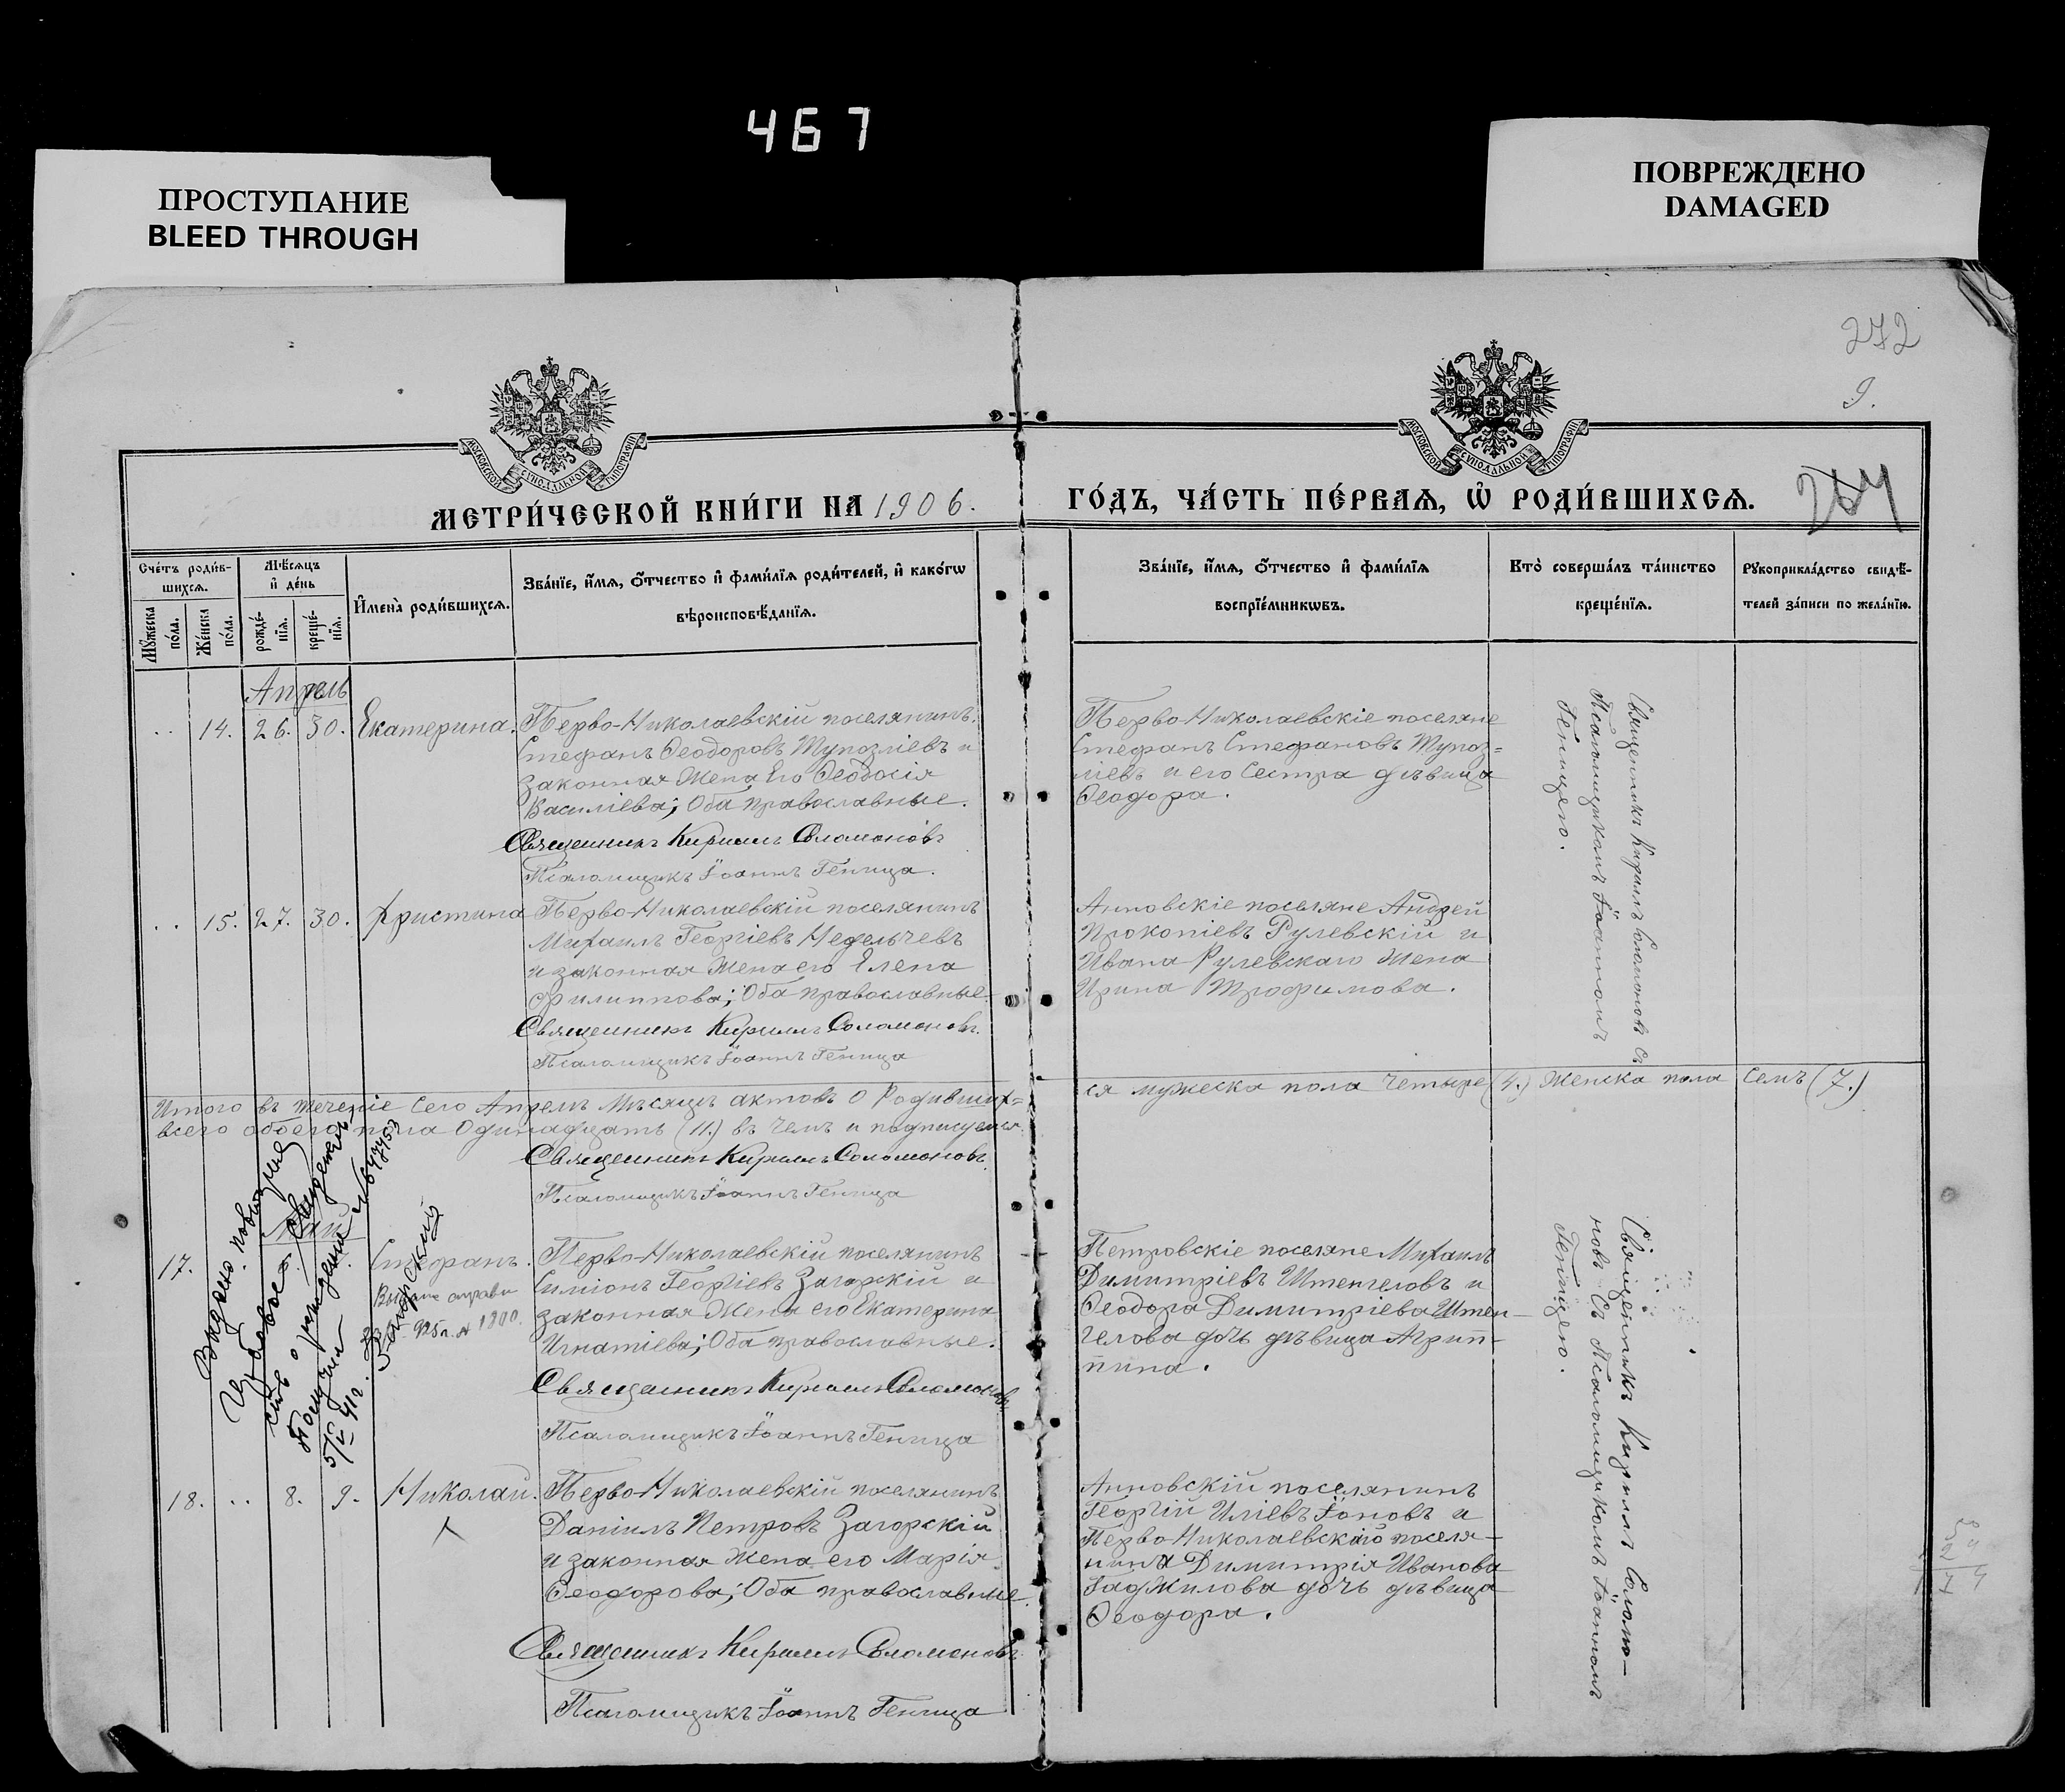 467
ПРОСТУПАНИЕ
BLEED THROUGH
ПОВРЕЖДЕНО
DAMAGED
272
9.
МОСКОВСКОЙ СѴНОДАЛЬНОЙ ТИПОГРАФІИ
МОСКОВСКОЙ СѴНОДАЛЬНОЙ ТИПОГРАФІИ
МЕТРИ́ЧЕСКОЙ КНИ́ГИ НА 1906.
ГО́ДЪ, ЧА́СТЬ ПЕ́РВАѦ, Ѡ҆ РОДИ́ВШИХСѦ.
264
Сче́тъ роди́в-
шихсѧ.
Мѣ́сѧцъ
и҆ де́нь
Мꙋ́жеска
по́ла.
Же́нска
по́ла.
рожде́-
нїѧ.
креще́-
нїѧ.
И҆мена̀ роди́вшихсѧ.
Зва́нїе, и҆́мѧ, ѻ҆́тчество и҆ фами́лїѧ роди́телей, и҆ како́гѡ
вѣроисповѣ́данїѧ.
Зва́нїе, и҆́мѧ, ѻ҆́тчество и҆ фами́лїѧ
воспрїе́мникѡвъ.
Кто̀ соверша́лъ та́инство
креще́нїѧ.
Рꙋкоприкла́дство свидѣ́-
телей за́писи по жела́нїю.
Апрель
14. 26. 30. Екатерина.
Перво-Николаевскій поселянинъ
Стефанъ Ѳеодоровъ Тупозліевъ и
законная жена Его Ѳеодосія
Василіева; Оба православные.
Священникъ Кириллъ Соломоновъ
Псаломщикъ Іоаннъ Геница.
Перво-Николаевскіе поселяне
Стефанъ Стефановъ Тупоз=
ліевъ и его Сестра дѣвица
Ѳеодора.
Священникъ Кириллъ Соломоновъ Съ
Псаломщикомъ Іоанномъ
Геницею.
15. 27. 30. Христина
Перво-Николаевскій поселянинъ
Михаилъ Георгіевъ Недельчевъ
и законная жена его Елена
Филиппова; Оба православные.
Священникъ Кириллъ Соломоновъ.
Псаломщикъ Іоаннъ Геница
Анновскіе поселяне Андрей
Прокопіевъ Рулевскій и
Ивана Рулевскаго жена
Ирина Трофимова.
Итого въ теченіе Сего Апрель Мѣсяцъ актовъ о Родивших=
ся мужеска пола Четыре (4.) Женска пола Семъ (7.)
всего обоего пола Одинадцать (11.) въ Чемъ и подписуемся
Священникъ Кириллъ Соломоновъ.
Псаломщикъ Іоаннъ Геница
Май
17. Стефанъ.
Загорский
1800.
Выдано повторное
о рождении
Получил
5/V 41г.
Перво-Николаевскій поселянинъ
Симіонъ Георгіевъ Загорскій и
законная Жена его Екатерина
Игнатіева; Оба православные.
Священникъ Кириллъ Соломоновъ
Псаломщикъ Іоаннъ Геница
Петровскіе поселяне Михаилъ
Димитріевъ Штенгеловъ и
Ѳеодора Димитріева Штен-
гелова дочь дѣвица Агрип-
пина.
Священникъ Кириллъ Соломо-
новъ Съ Псаломщикомъ Іоанномъ
Геницею.
18. 8. 9. Николай.
Перво-Николаевскій поселянинъ
Даніилъ Петровъ Загорскій
и законная жена его Марія
Ѳеодорова; Оба православные.
Священникъ Кириллъ Соломоновъ
Псаломщикъ Іоаннъ Геница
Анновскій поселянинъ
Георгій Иліевъ Іоновъ и
Перво-Николаевскаго поселя-
нина Димитрія Иванова
Гаджилова дочь дѣвица
Ѳеодора.